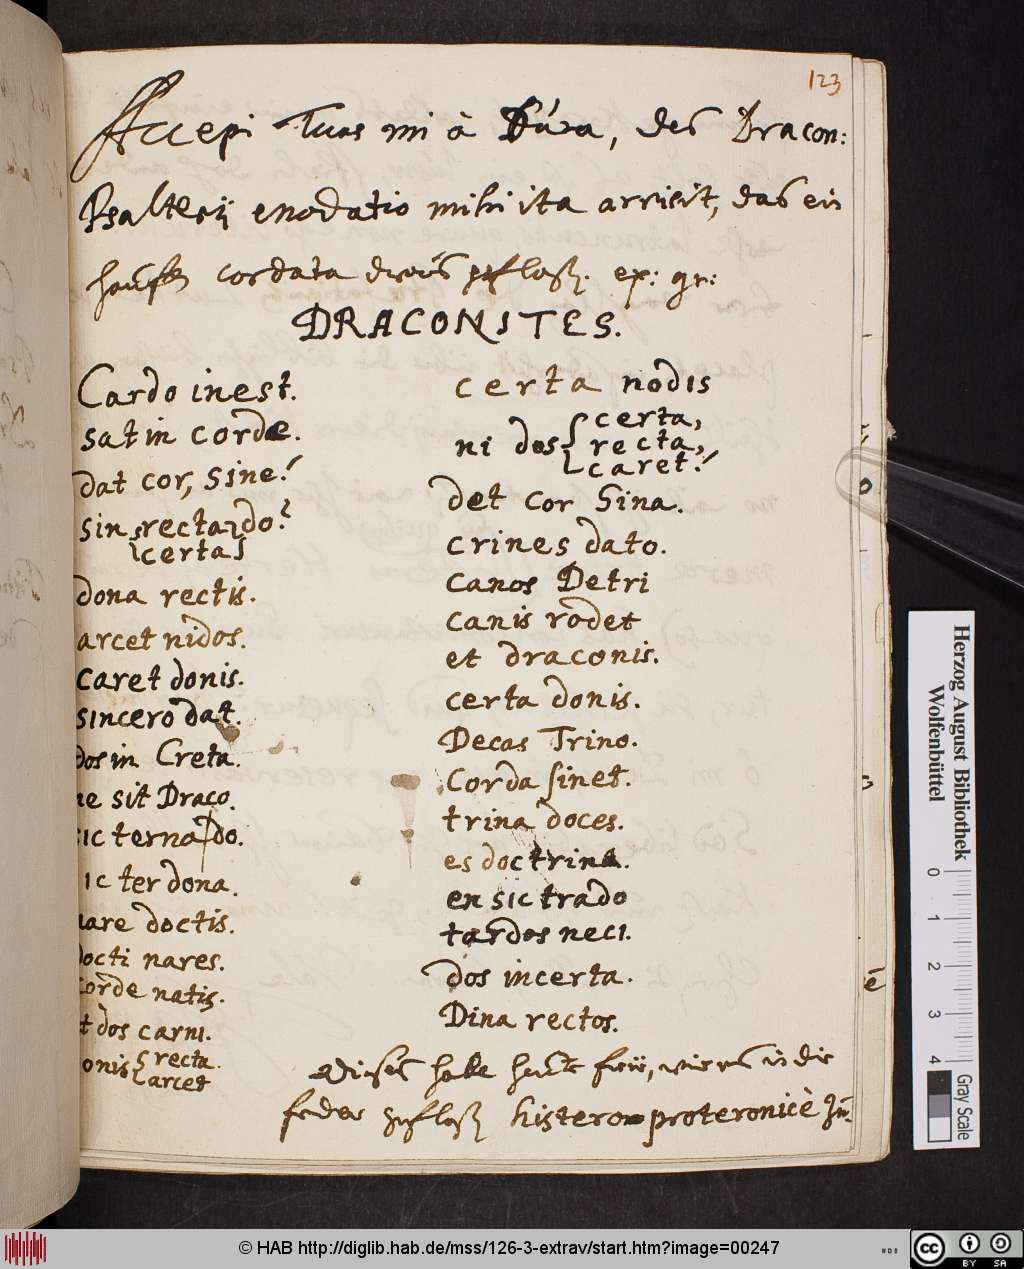 123
Accepi Tuas mi à Dúra, des Dracon:
Psalterij enodatio mihi ita arrisit, das ein
cordata ex: gr:
DRACONITES.
Cardo inest.
satin corde.
dat cor, sine!
sin recta do?
certa
dona rectis.
arcet nidos.
caret donis.
sincero dat.
dos in Creta.
ne sit Draco.
sic terna do.
ic ter dona.
uare doctis.
docti nares.
corde natis.
t dos carni.
onis recta.
arcet
certa nodis
ni dos certa,
recta,
caret!
det cor Sina.
crines dato.
canos Detri
canis rodet
et draconis.
certa donis.
Decas Trino.
Corda sinet.
trina doces.
es doctrina.
en sic trado
tardos neci.
dos incerta.
Dina rectos.
Dieses habe heute frü, wie in die
feder histeroproteronicè
o
n
é
Herzog August Bibliothek
Wolfenbüttel
0 1 2 3 4
Gray Scale
© HAB http://diglib.hab.de/mss/126-3-extrav/start.htm?image=00247
HAB
cc
BY SA